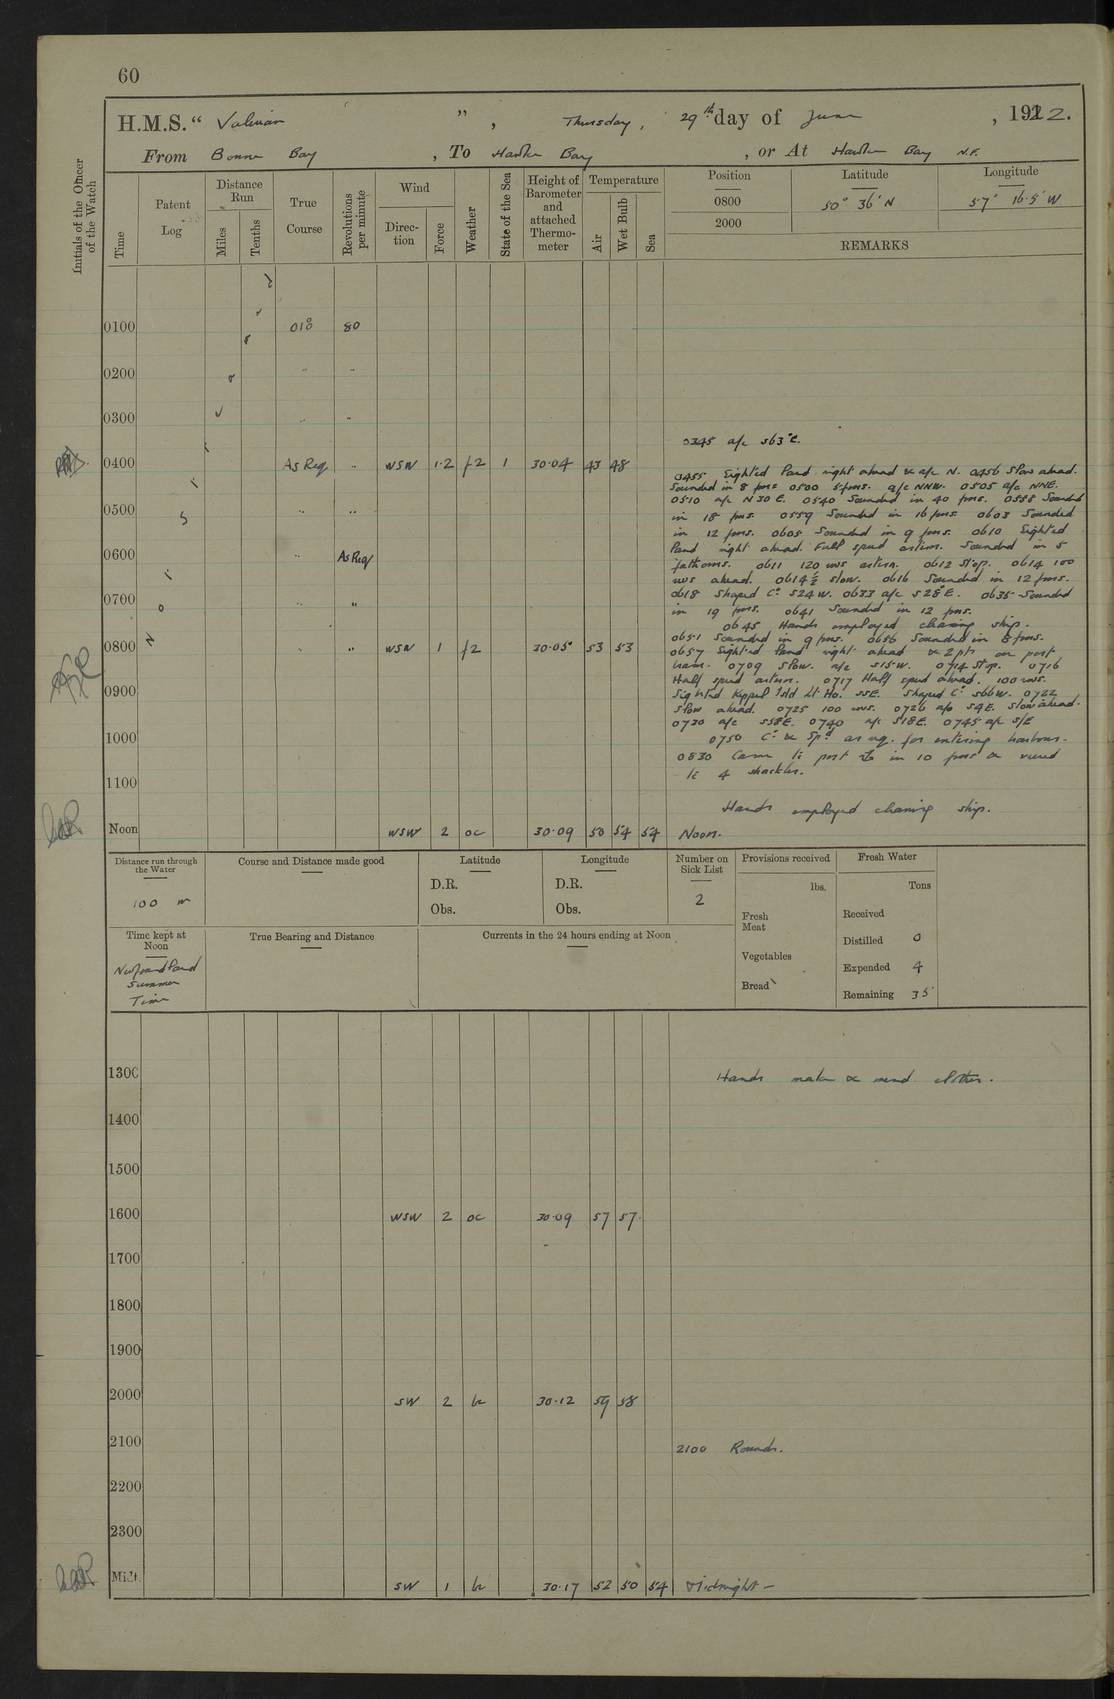 60
H.M.S. “ Valerian ”, Thursday, 29th day of June, 1922.
From Bonne Bay, To Hawke Bay, or At Hawke Bay N.F.
Initials of the Officer of the Watch
Time
Patent Log
Distance Run
Miles
Tenths
True Course
Revolutions per minute
Wind
Direction
Force
Weather
State of the Sea
Height of Barometer and attached Thermometer
Temperature
Air
Wet Bulb
Sea
Position
Latitude
Longitude
0800 50° 36' N 57° 16.5' W
2000
REMARKS
0100 010° 80
0200 " "
0300 " "
0345 a/c S63°E.
0400 As Req. " WSW 1.2 f2 1 30.04 43 48
0455 Sighted Land right ahead & a/c N. 0456 Slow ahead.
Sounded in 8 fms 0500 5 fms. a/c NNW. 0505 a/c NNE.
0510 a/c N30E. 0540 Sounded in 40 fms. 0558 Sounded
0500 " "
in 18 fms. 0559 Sounded in 16 fms. 0603 Sounded
in 12 fms. 0605 Sounded in 9 fms. 0610 Sighted
0600 " As Req
Land right ahead. Full speed astern. Sounded in 5
fathoms. 0611 120 revs astern. 0612 Stop. 0614 100
revs ahead. 0614½ slow. 0616 Sounded in 12 fms.
0618 Shaped Co. S24W. 0633 a/c S28°E. 0635 Sounded
0700 " "
in 19 fms. 0641 Sounded in 12 fms.
0645 Hands employed cleaning ship.
0651 Sounded in 9 fms. 0656 Sounded in 8 fms.
0800 " " WSW 1 f2 30.05 53 53
0657 Sighted Land right ahead & 2 pts on port
beam. 0709 Slow. a/c S15W. 0714 Stop. 0716
Half speed astern. 0717 Half speed ahead. 100 revs.
0900
Sighted Keppel Isld Lt. Ho. SSE. Shaped Co. S66W. 0722
Slow ahead. 0725 100 revs. 0726 a/c S9E. Slow ahead.
0730 a/c S58E. 0740 a/c S18E. 0745 a/c S/E
1000
0750 Co. & Spd. as req. for entering harbour.
0830 Came to port in 10 fms & veered
to 4 shackles.
1100
Hands employed cleaning ship.
Noon WSW 2 oc 30.09 50 54 54 Noon.
Distance run through the Water
100 m
Course and Distance made good
Latitude
D.R.
Obs.
Longitude
D.R.
Obs.
Number on Sick List
2
Provisions received
lbs.
Fresh Meat
Vegetables
Bread
Fresh Water
Tons
Received
Distilled 0
Expended 4
Remaining 35
Time kept at Noon
Newfoundland
Summer
Time
True Bearing and Distance
Currents in the 24 hours ending at Noon
1300 Hands make & mend clothes.
1400
1500
1600 WSW 2 oc 30.09 57 57
1700
1800
1900
2000 SW 2 bc 30.12 59 58
2100 2100 Rounds.
2200
2300
Midt. SW 1 bc 30.17 52 50 54 Midnight —